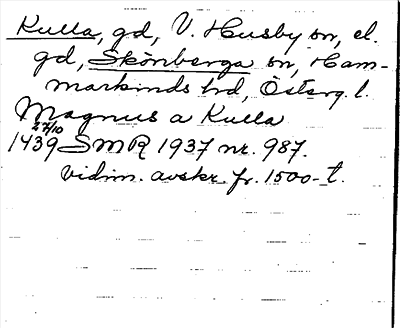 Kulla, gd, V. Husby sn, el.
gd, Skönberga sn, Ham-
markinds hd, Österg. l.
Magnus a Kulla
27/10
1439 SMR 1937 nr. 987.
vidim. avskr. fr. 1500-t.